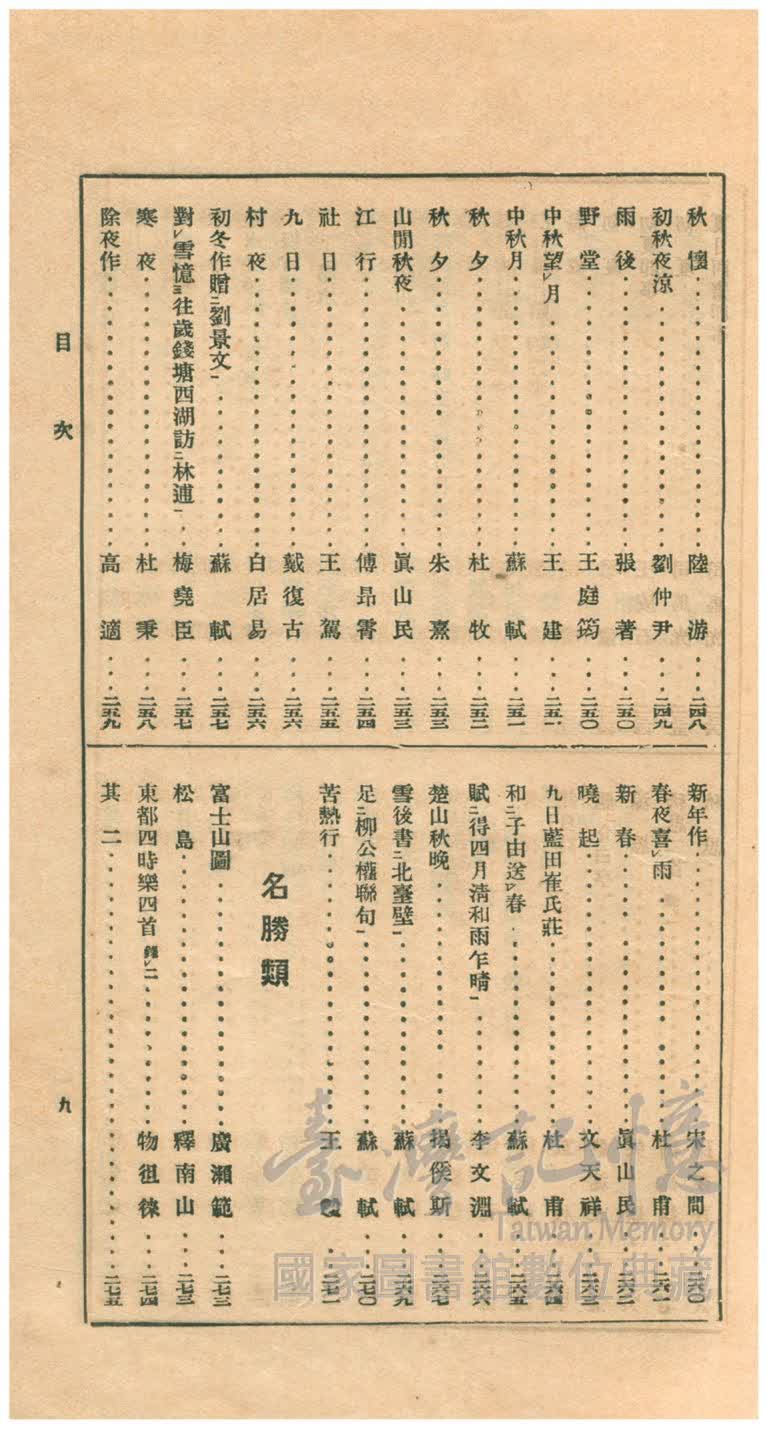 秋懷 陸游 二四八
初秋夜涼 劉仲尹 二四九
雨後 張著 二五〇
野堂 王庭筠 二五〇
中秋望レ月 王建 二五一
中秋月 蘇軾 二五一
秋夕 杜牧 二五二
秋夕 朱熹 二五三
山閒秋夜 眞山民 二五三
江行 傅昂霄 二五四
社日 王駕 二五五
九日 戴復古 二五六
村夜 白居易 二五六
初冬作贈二劉景文一 蘇軾 二五七
對レ雪憶三往歲錢塘西湖訪二林逋一 梅堯臣 二五七
寒夜 杜耒 二五八
除夜作 高適 二五九
新年作 宋之問 二六〇
春夜喜レ雨 杜甫 二六一
新春 眞山民 二六二
曉起 文天祥 二六三
九日藍田崔氏莊 杜甫 二六四
和二子由送一レ春 蘇軾 二六五
賦二得四月清和雨乍晴一 李文淵 二六六
楚山秋晚 揭傒斯 二六七
雪後書二北臺壁一 蘇軾 二六九
足二柳公權聯句一 蘇軾 二七〇
苦熱行 王 二七一
名勝類
富士山圖 廣瀨範 二七三
松島 釋南山 二七三
東都四時樂四首 錄レ二 物徂徠 二七四
其二 二七五
目次
九
臺灣記憶
Taiwan Memory
國家圖書館數位典藏